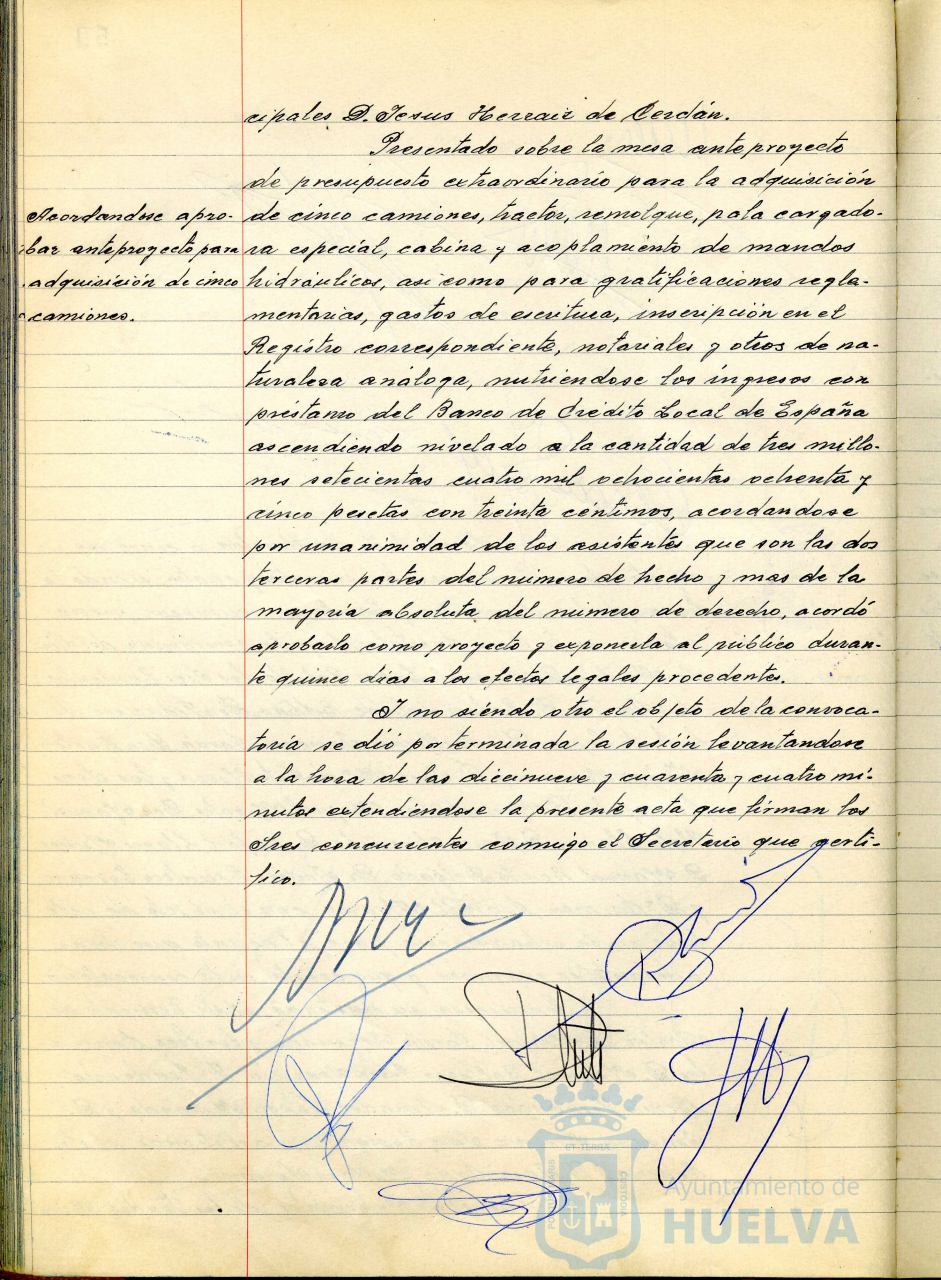 cipales D. Jesus Herraiz de Cerdán.
Presentado sobre la mesa anteproyecto
de presupuesto extraordinario para la adquisición
Acordandose apro-
bar anteproyecto para
adquisición de cinco
camiones.
de cinco camiones, tractor, remolque, pala cargado-
ra especial, cabina y acoplamiento de mandos
hidráulicos, asi como para gratificaciones regla-
mentarias, gastos de escritura, inscripción en el
Registro correspondiente, notariales y otros de na-
turaleza análoga, nutriendose los ingresos con
préstamo del Banco de Crédito Local de España
ascendiendo nivelado a la cantidad de tres millo-
nes setecientas cuatro mil ochocientas ochenta y
cinco pesetas con treinta céntimos, acordandose
por unanimidad de los asistentes que son las dos
terceras partes del número de hecho y mas de la
mayoría absoluta del número de derecho, acordó
aprobarlo como proyecto y exponerla al público duran-
te quince dias a los efectos legales procedentes.
Y no siendo otro el objeto de la convoca-
toria se dió por terminada la sesión levantandose
a la hora de las diecinueve y cuarenta y cuatro mi-
nutos extendiendose la presente acta que firman los
Sres concurrentes conmigo el Secretario que certi-
fico.
Ayuntamiento de
HUELVA